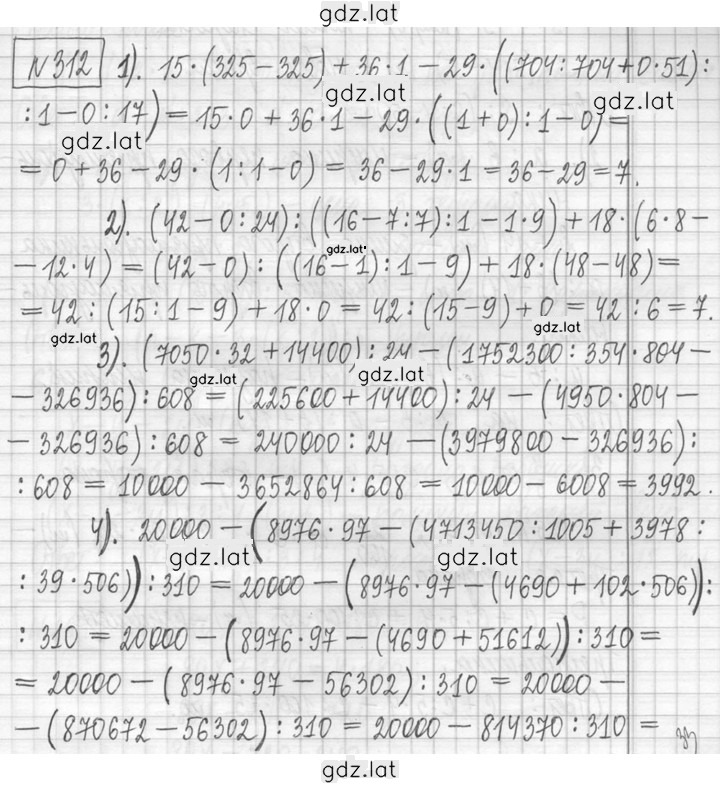 gdz.lat
N 312 1). 15·(325−325)+36·1−29·((704:704+0·51):
gdz.lat gdz.lat
:1−0:17)=15·0+36·1−29·((1+0):1−0)=
gdz.lat
=0+36−29·(1:1−0)=36−29·1=36−29=7.
2). (42−0:24):((16−7:7):1−1·9)+18·(6·8−
gdz.lat
−12·4)=(42−0):((16−1):1−9)+18·(48−48)=
=42:(15:1−9)+18·0=42:(15−9)+0=42:6=7.
gdz.lat gdz.lat
3). (7050·32+14400):24−(1752300:354·804−
gdz.lat gdz.lat
−326936):608=(225600+14400):24−(4950·804−
−326936):608=240000:24−(3979800−326936):
:608=10000−3652864:608=10000−6008=3992.
4). 20000−(8976·97−(4713450:1005+3978:
gdz.lat gdz.lat
:39·506)):310=20000−(8976·97−(4690+102·506)):
:310=20000−(8976·97−(4690+51612)):310=
=20000−(8976·97−56302):310=20000−
−(870672−56302):310=20000−814370:310=
gdz.lat